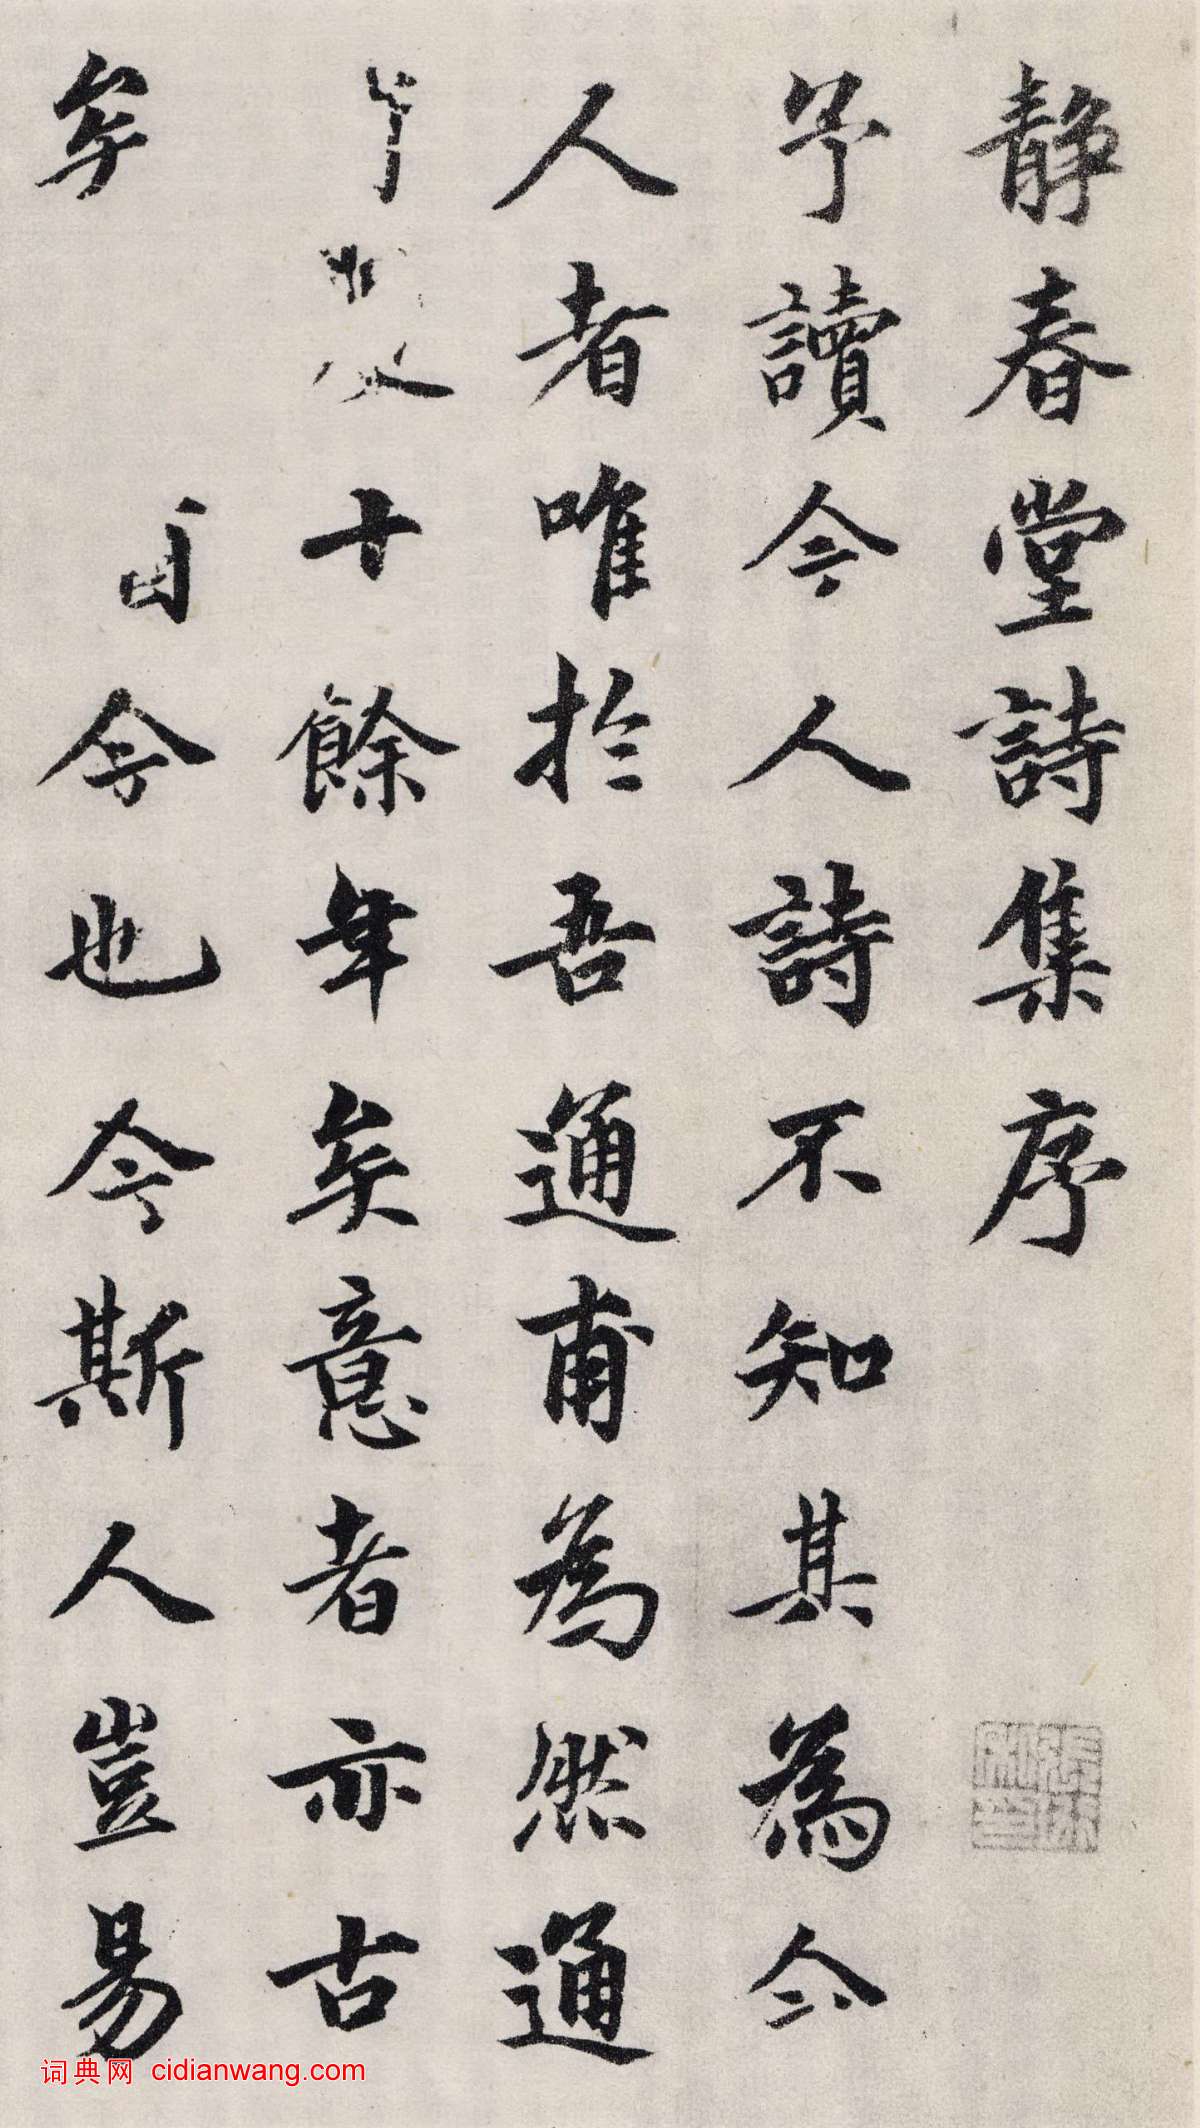 静春堂詩集序
予讀今人詩不知其為今
人者唯於吾通甫為然通
十餘年矣意者亦古
矣今也今斯人豈易
词典网 cidianwang.com